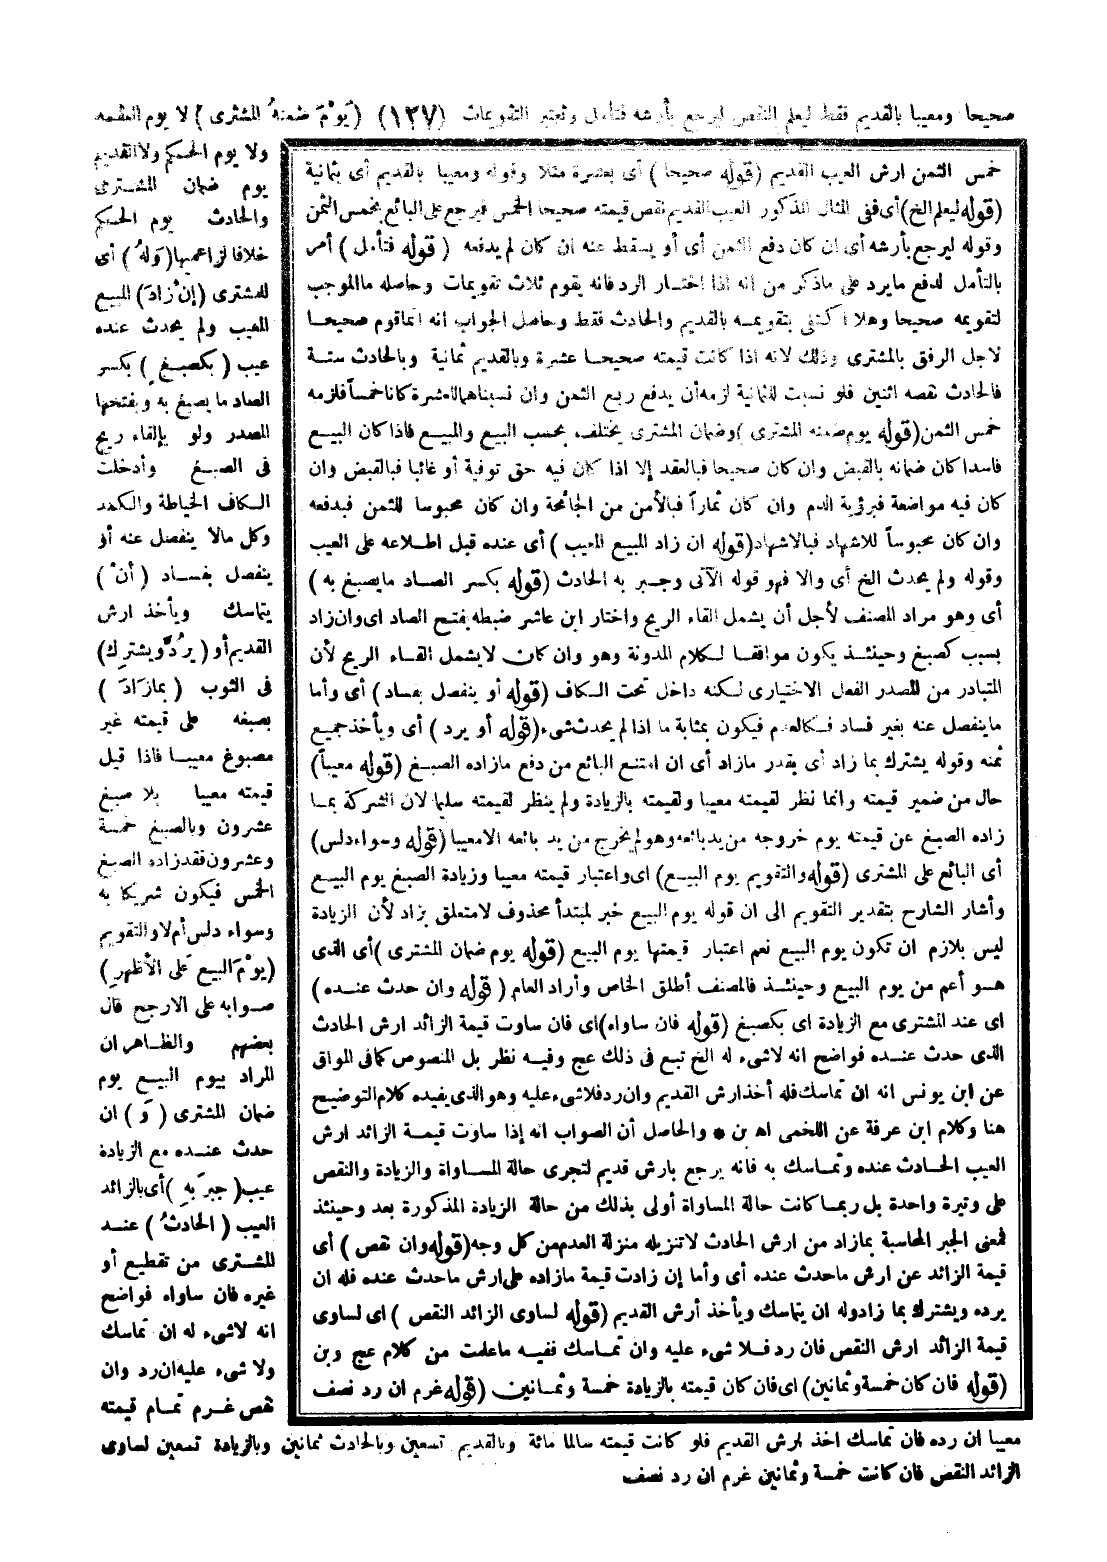 صحيحا ومعيبا بالقديم فقط ليعلم النقص ليرجع بأرشه فتأمل وتعتبر التقويمات (١٣٧) (يَوْمَ ضَمِنَهُ المشترى) لا يوم
ولا يوم الحكم ولا القديم
يوم ضمان المشترى
والحادث يوم الحكم
خلافا لزاعميها (وَلهُ) أى
للمشترى (إنْ زادَ) المبيع
المعيب ولم يحدث عنده
عيب (بكصبغٍ) بكسر
الصاد ما يصبغ به وبفتحها
المصدر ولو بإلقاء ريح
فى الصبغ وأدخلت
الكاف الخياطة والكمد
وكل مالا ينفصل عنه أو
ينفصل بفساد (أنْ)
يتماسك ويأخذ ارش
القديم أو (يردَّ ويشتركَ)
فى الثوب (بما زادَ)
بصبغه على قيمته غير
مصبوغ معيبا فاذا قيل
قيمته معيبا بلا صبغ
عشرون وبالصبغ خمسة
وعشرون فقد زاده الصبغ
الخمس فيكون شريكا به
وسواء دلس أم لا والتقويم
(يوْمَ البيعِ عَلَى الأظهرِ)
صوابه على الارجح قال
بعضهم والظاهر ان
المراد بيوم البيع يوم
ضمان المشترى (وَ) ان
حدث عنده مع الزيادة
عيب (جبرَ بهِ) أى بالزائد
العيب (الحادثُ) عند
المشترى من تقطيع أو
غيره فان ساواه فواضح
انه لاشىء له ان تماسك
ولا شىء عليه ان رد وان
نقص غرم تمام قيمته
خمس الثمن ارش العيب القديم (قوله صحيحا) أى بعشرة مثلا وقوله ومعيبا بالقديم أى بثمانية
(قوله ليعلم الخ) أى ففى المثال المذكور العيب القديم نقص قيمته صحيحا الخمس فيرجع على البائع بخمس الثمن
وقوله ليرجع بأرشه أى ان كان دفع الثمن أى أو يسقط عنه ان كان لم يدفعه (قوله فتأمل) أمر
بالتأمل لدفع ما يرد على ماذكر من انه اذا اختار الرد فانه يقوم ثلاث تقويمات وحاصله ما الموجب
لتقويمه صحيحا وهلا اكتفى بتقويمه بالقديم والحادث فقط وحاصل الجواب انه انما قوم صحيحا
لاجل الرفق بالمشترى وذلك لانه اذا كانت قيمته صحيحا عشرة وبالقديم ثمانية وبالحادث ستة
فالحادث نقصه اثنين فلو نسبت للثمانية لزمه أن يدفع ربع الثمن وان نسبناهما للعشرة كانا خمساً فلزمه
خمس الثمن (قوله يوم ضمنه المشترى) وضمان المشترى يختلف بحسب البيع والمبيع فاذا كان البيع
فاسدا كان ضمانه بالقبض وان كان صحيحا فبالعقد إلا اذا كان فيه حق توفية أو غائبا فبالقبض وان
كان فيه مواضعة فبرؤية الدم وان كان ثماراً فبالأمن من الجائحة وان كان محبوسا للثمن فبدفعه
وان كان محبوساً للاشهاد فبالاشهاد (قوله ان زاد المبيع المعيب) أى عنده قبل اطلاعه على العيب
وقوله ولم يحدث الخ أى والا فهو قوله الآتى وجبر به الحادث (قوله بكسر الصاد ما يصبغ به)
أى وهو مراد المصنف لأجل أن يشمل القاء الريح واختار ابن عاشر ضبطه بفتح الصاد اى وان زاد
بسبب كصبغ وحينئذ يكون موافقا لكلام المدونة وهو وان كان لايشمل القاء الريح لأن
المتبادر من المصدر الفعل الاختيارى لكنه داخل تحت الكاف (قوله أو ينفصل بفساد) أى وأما
ما ينفصل عنه بغير فساد فكالعدم فيكون بمثابة ما اذا لم يحدث شىء (قوله أو يرد) أى ويأخذ جميع
ثمنه وقوله يشترك بما زاد أى بقدر مازاد أى ان امتنع البائع من دفع مازاده الصبغ (قوله معيباً)
حال من ضمير قيمته وانما نظر لقيمته معيبا ولقيمته بالزيادة ولم ينظر لقيمته سليما لان الشركة بما
زاده الصبغ عن قيمته يوم خروجه من يد بائعه وهو لم يخرج من يد بائعه الا معيبا (قوله وسواء دلس)
أى البائع على المشترى (قوله والتقويم يوم البيع) اى واعتبار قيمته معيبا وزيادة الصبغ يوم البيع
وأشار الشارح بتقدير التقويم الى ان قوله يوم البيع خبر لمبتدأ محذوف لا متعلق بزاد لأن الزيادة
ليس بلازم ان تكون يوم البيع نعم اعتبار قيمتها يوم البيع (قوله يوم ضمان المشترى) أى الذى
هو أعم من يوم البيع وحينئذ فالمصنف أطلق الخاص وأراد العام (قوله وان حدث عنده)
اى عند المشترى مع الزيادة اى بكصبغ (قوله فان ساواه) اى فان ساوت قيمة الزائد ارش الحادث
الذى حدث عنده فواضح انه لاشىء له الخ تبع فى ذلك عج وفيه نظر بل المنصوص كما فى المواق
عن ابن يونس انه ان تماسك فله أخذ ارش القديم وان رد فلا شىء عليه وهو الذى يفيده كلام التوضيح
هنا وكلام ابن عرفة عن اللخمى اه بن * والحاصل أن الصواب انه إذا ساوت قيمة الزائد ارش
العيب الحادث عنده وتماسك به فانه يرجع بارش قديم لتجرى حالة المساواة والزيادة والنقص
على وتيرة واحدة بل ربما كانت حالة المساواة أولى بذلك من حالة الزيادة المذكورة بعد وحينئذ
فمعنى الجبر المحاسبة بمازاد من ارش الحادث لا تنزيله منزلة العدم من كل وجه (قوله وان نقص) أى
قيمة الزائد عن ارش ماحدث عنده أى وأما إن زادت قيمة مازاده على ارش ماحدث عنده فله ان
يرده ويشترك بما زاد وله ان يتماسك ويأخذ أرش القديم (قوله لساوى الزائد النقص) اى لساوى
قيمة الزائد ارش النقص فان رد فلا شىء عليه وان تماسك ففيه ماعلمت من كلام عج وبن
(قوله فان كان خمسة وثمانين) اى فان كان قيمته بالزيادة خمسة وثمانين (قوله غرم ان رد نصف
معيبا ان رده فان تماسك اخذ ارش القديم فلو كانت قيمته سالما مائة وبالقديم تسعين وبالحادث ثمانين وبالزيادة تسعين لساوى
الزائد النقص فان كانت خمسة وثمانين غرم ان رد نصف